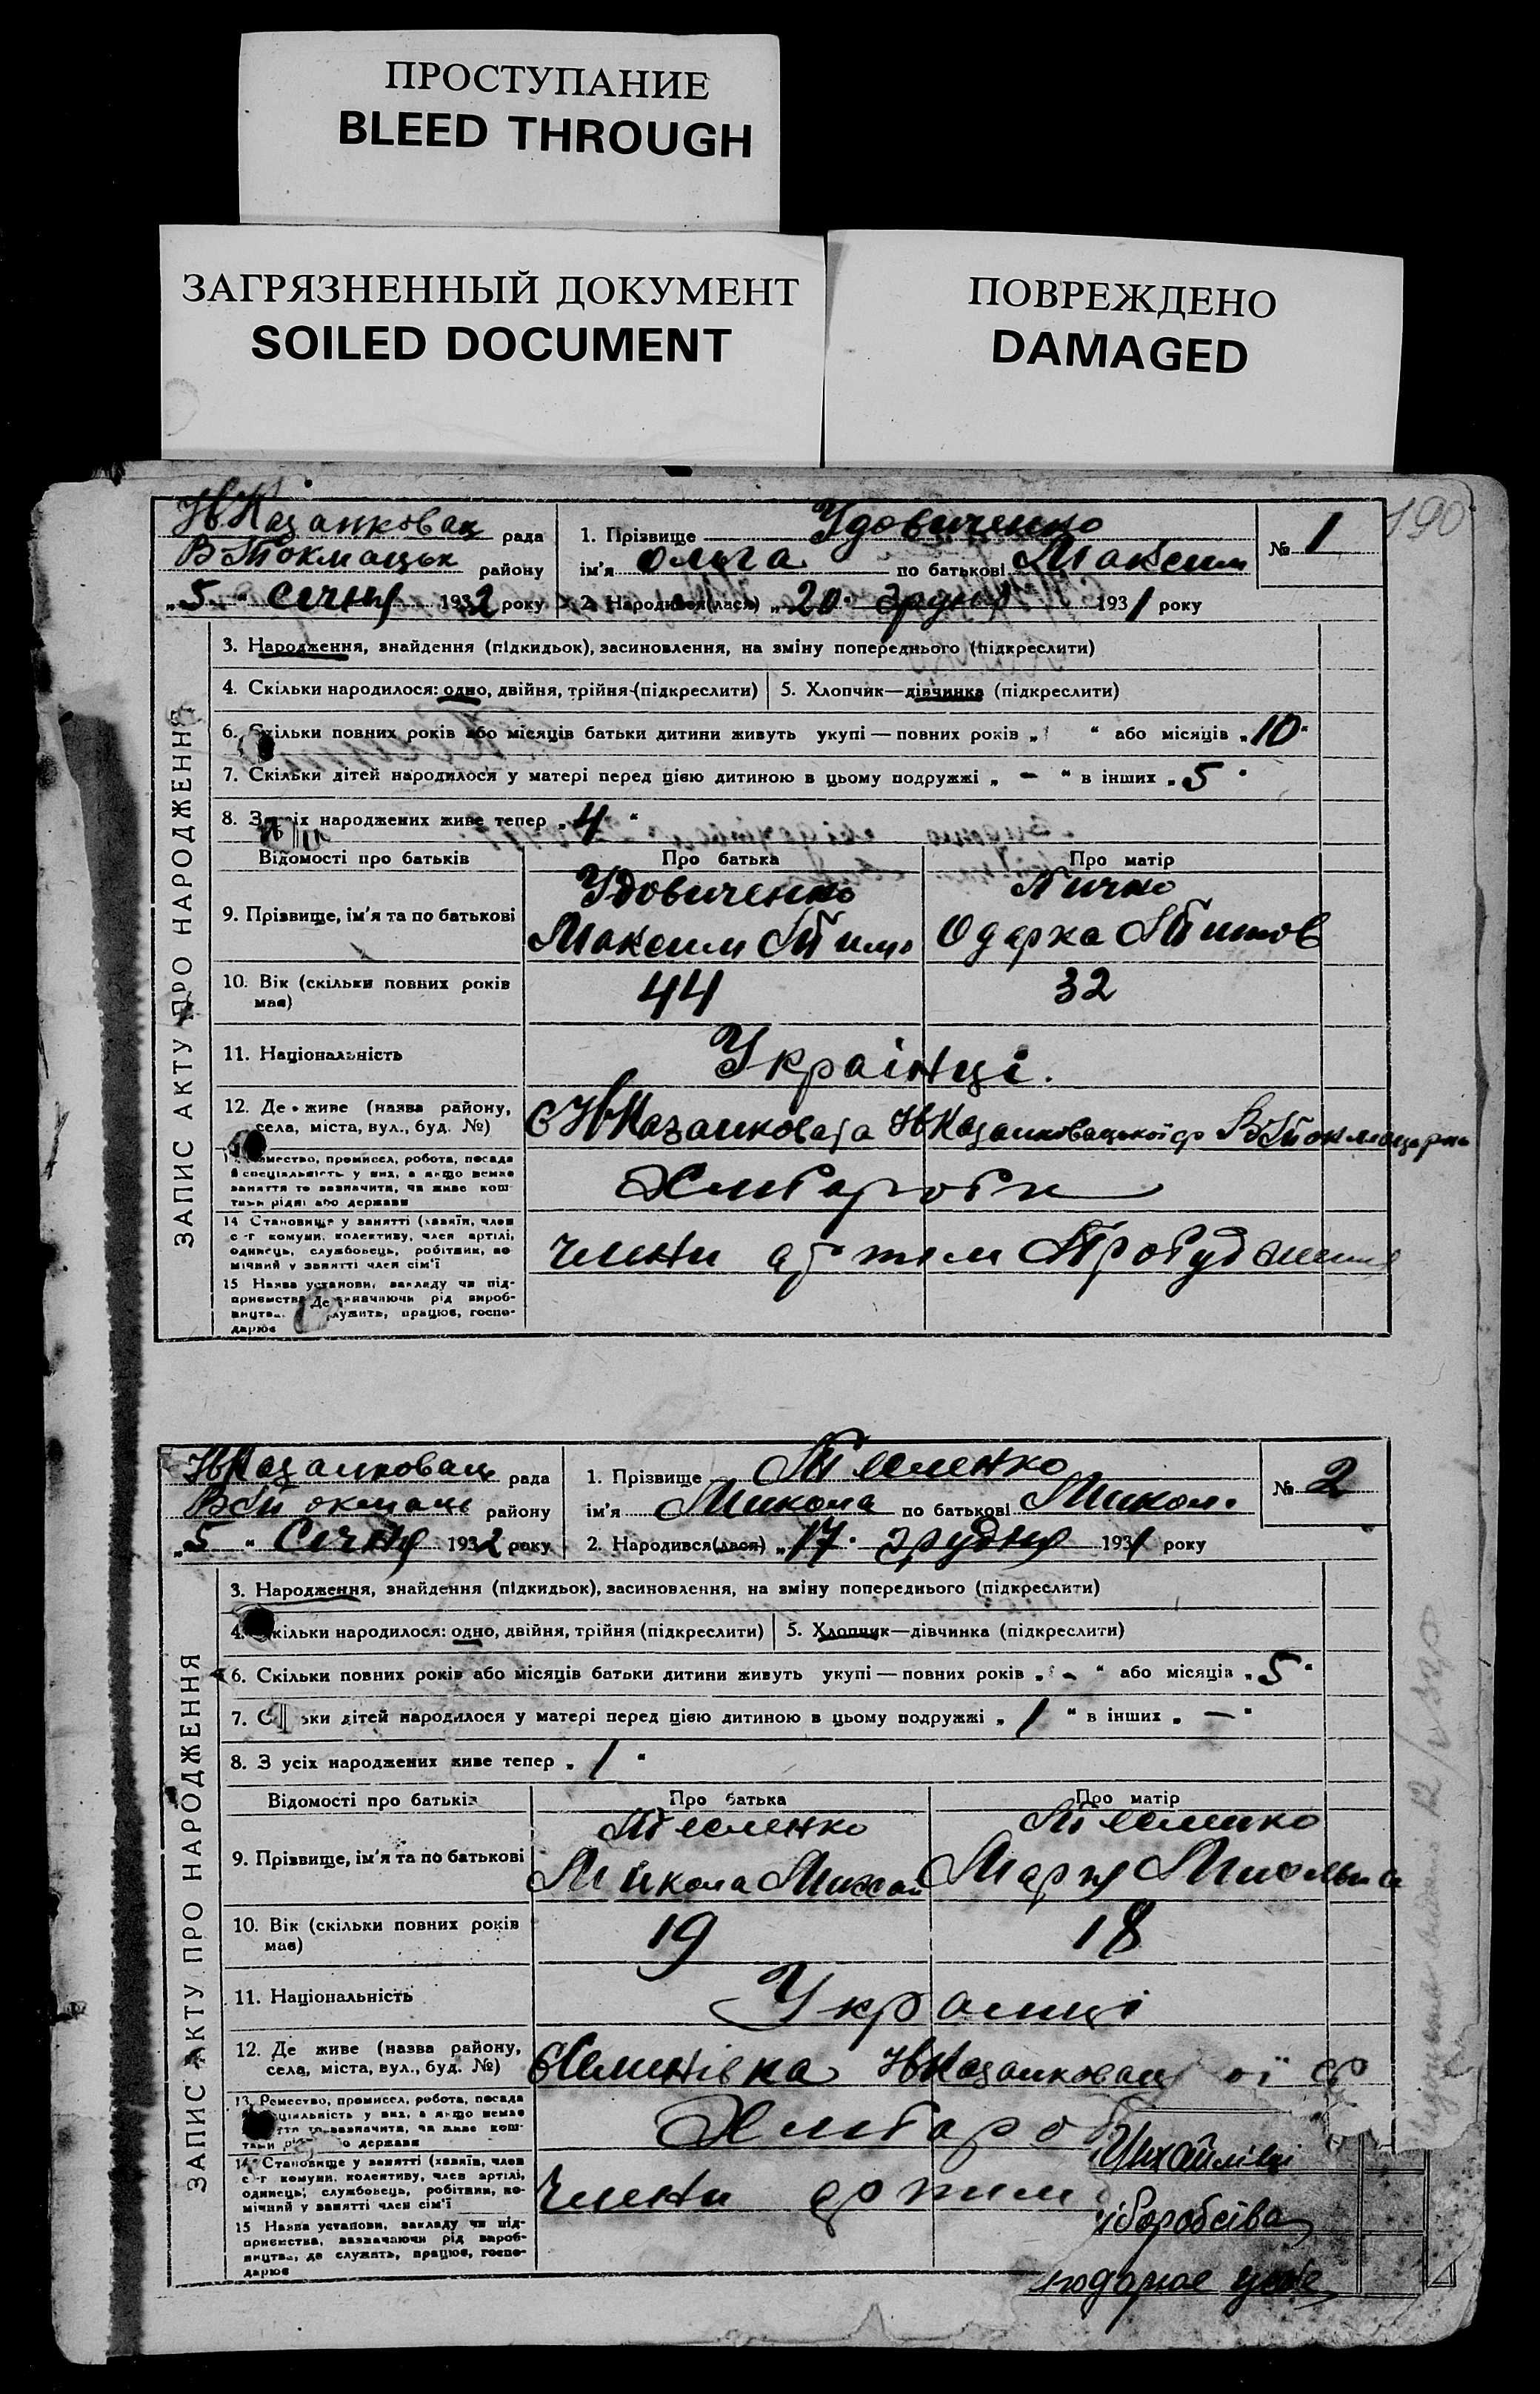 ПРОСТУПАНИЕ
BLEED THROUGH
ЗАГРЯЗНЕННЫЙ ДОКУМЕНТ
SOILED DOCUMENT
ПОВРЕЖДЕНО
DAMAGED
190
НвКазанковац рада
ВТокмацьк району
„5“ Січня 1932 року
1. Прізвище Удовиченко
ім'я Ольга по батькові Максим
2. Народився(лася) „20“ грудня 1931 року
№ 1
ЗАПИС АКТУ ПРО НАРОДЖЕННЯ
3. Народження, знайдення (підкидьок), засиновлення, на зміну попереднього (підкреслити)
4. Скільки народилося: одно, двійня, трійня (підкреслити) 5. Хлопчик—дівчинка (підкреслити)
6. Скільки повних років або місяців батьки дитини живуть укупі — повних років „ “ або місяців „10“
7. Скільки дітей народилося у матері перед цією дитиною в цьому подружжі „ – “ в інших „5“
8. З усіх народжених живе тепер „4“
Відомості про батьків Про батька Про матір
9. Прізвище, ім'я та по батькові
Удовиченко
Максим Тимо
Одарка Титов
10. Вік (скільки повних років має) 44 32
11. Національність Українці.
12. Де живе (назва району, села, міста, вул., буд. №)
с НвКазанковата НвКазанковацької ВТокмацьк
13. Ремество, промисел, робота, посада
й спеціальність у них, а якщо немає
заняття то зазначити, чи живе кош-
тами рідні або держави
Хлібороби
14 Становище у занятті (хазяїн, член
с-г комуни, колективу, член артілі,
одинець, службовець, робітник, по-
мічний у занятті член сім'ї
члени артіли Пробуджения
15 Назва установи, закладу чи під-
приємства, зазначаючи рід вироб-
ництва, де служить, працює, госпо-
дарює
НвКазанковац рада
ВТокмаць району
„5“ Січня 1932 року
1. Прізвище Тесленко
ім'я Микола по батькові Микол.
2. Народився(лася) „17“ грудня 1931 року
№ 2
ЗАПИС АКТУ ПРО НАРОДЖЕННЯ
3. Народження, знайдення (підкидьок), засиновлення, на зміну попереднього (підкреслити)
4. Скільки народилося: одно, двійня, трійня (підкреслити) 5. Хлопчик—дівчинка (підкреслити)
6. Скільки повних років або місяців батьки дитини живуть укупі — повних років „ – “ або місяців „5“
7. Скільки дітей народилося у матері перед цією дитиною в цьому подружжі „ 1 “ в інших „ — “
8. З усіх народжених живе тепер „ 1 “
Відомості про батьків Про батька Про матір
9. Прізвище, ім'я та по батькові
Тесленко Тесленко
Микола Михай Марія
10. Вік (скільки повних років має) 19 18
11. Національність Українці
12. Де живе (назва району, села, міста, вул., буд. №)
НвКазанковац ої ср
13. Ремество, промисел, робота, посада
й спеціальність у них, а якщо немає
заняття то зазначити, чи живе кош-
тами рідні або держави
Хлібороб
14 Становище у занятті (хазяїн, член
с-г комуни, колективу, член артілі,
одинець, службовець, робітник, по-
мічний у занятті член сім'ї
члени артіли
15 Назва установи, закладу чи під-
приємства, зазначаючи рід вироб-
ництва, де служить, працює, госпо-
дарює